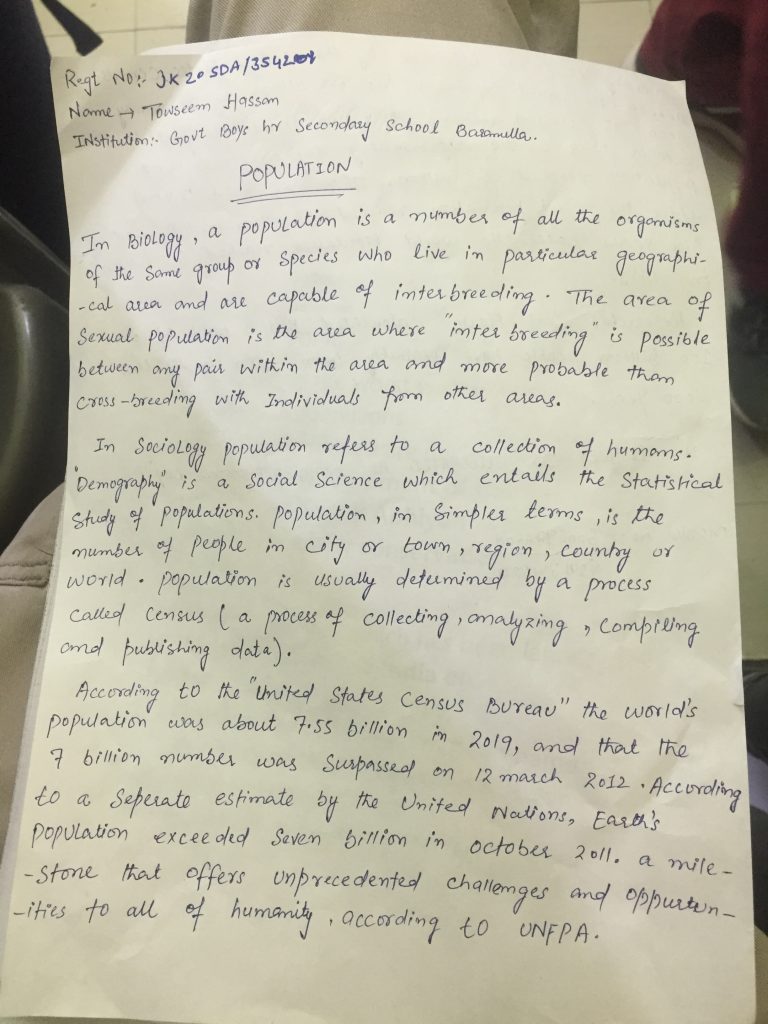 Regt No:- JK20SDA/354201
Name → Towseem Hassan
Institution:- Govt Boys hr Secondary School Baramulla.
POPULATION
In Biology, a population is a number of all the organisms
of the Same group or Species who live in particular geographi-
-cal area and are capable of interbreeding. The area of
Sexual population is the area where "inter breeding" is possible
between any pair within the area and more probable than
Cross-breeding with Individuals from other areas.
In Sociology population refers to a collection of humans.
"Demography" is a Social Science which entails the Statistical
Study of populations. population, in Simpler terms, is the
number of people in city or town, region, country or
world. population is usually determined by a process
called census (a process of collecting, analyzing, compiling
and publishing data).
According to the "United States Census Bureau" the world's
population was about 7.55 billion in 2019, and that the
7 billion number was Surpassed on 12 march 2012. According
to a Seperate estimate by the United Nations, Earth's
population exceeded Seven billion in october 2011. a mile-
-stone that offers unprecedented challenges and oppurtun-
-ities to all of humanity, according to UNFPA.